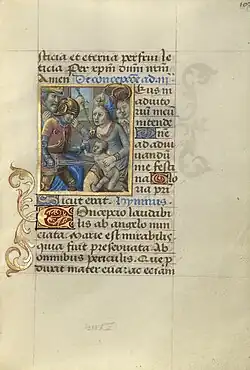 sticia et eterna perfrui le
ticia Per xpm dnm nrm
Amen De conceptõe ad
Eus in
adiuto
riũ meũ
intende
Dñe
ad adiu
uandũ
me festi
na Glo
ria pri
Sicut erat. Hymnus
Conceptio laudabi
lis ab angelo nun
ciata. Marie est mirabilis
qua fuit preseruata Ab
omnibus periculis. Que p
durat mater eua: ac etiam